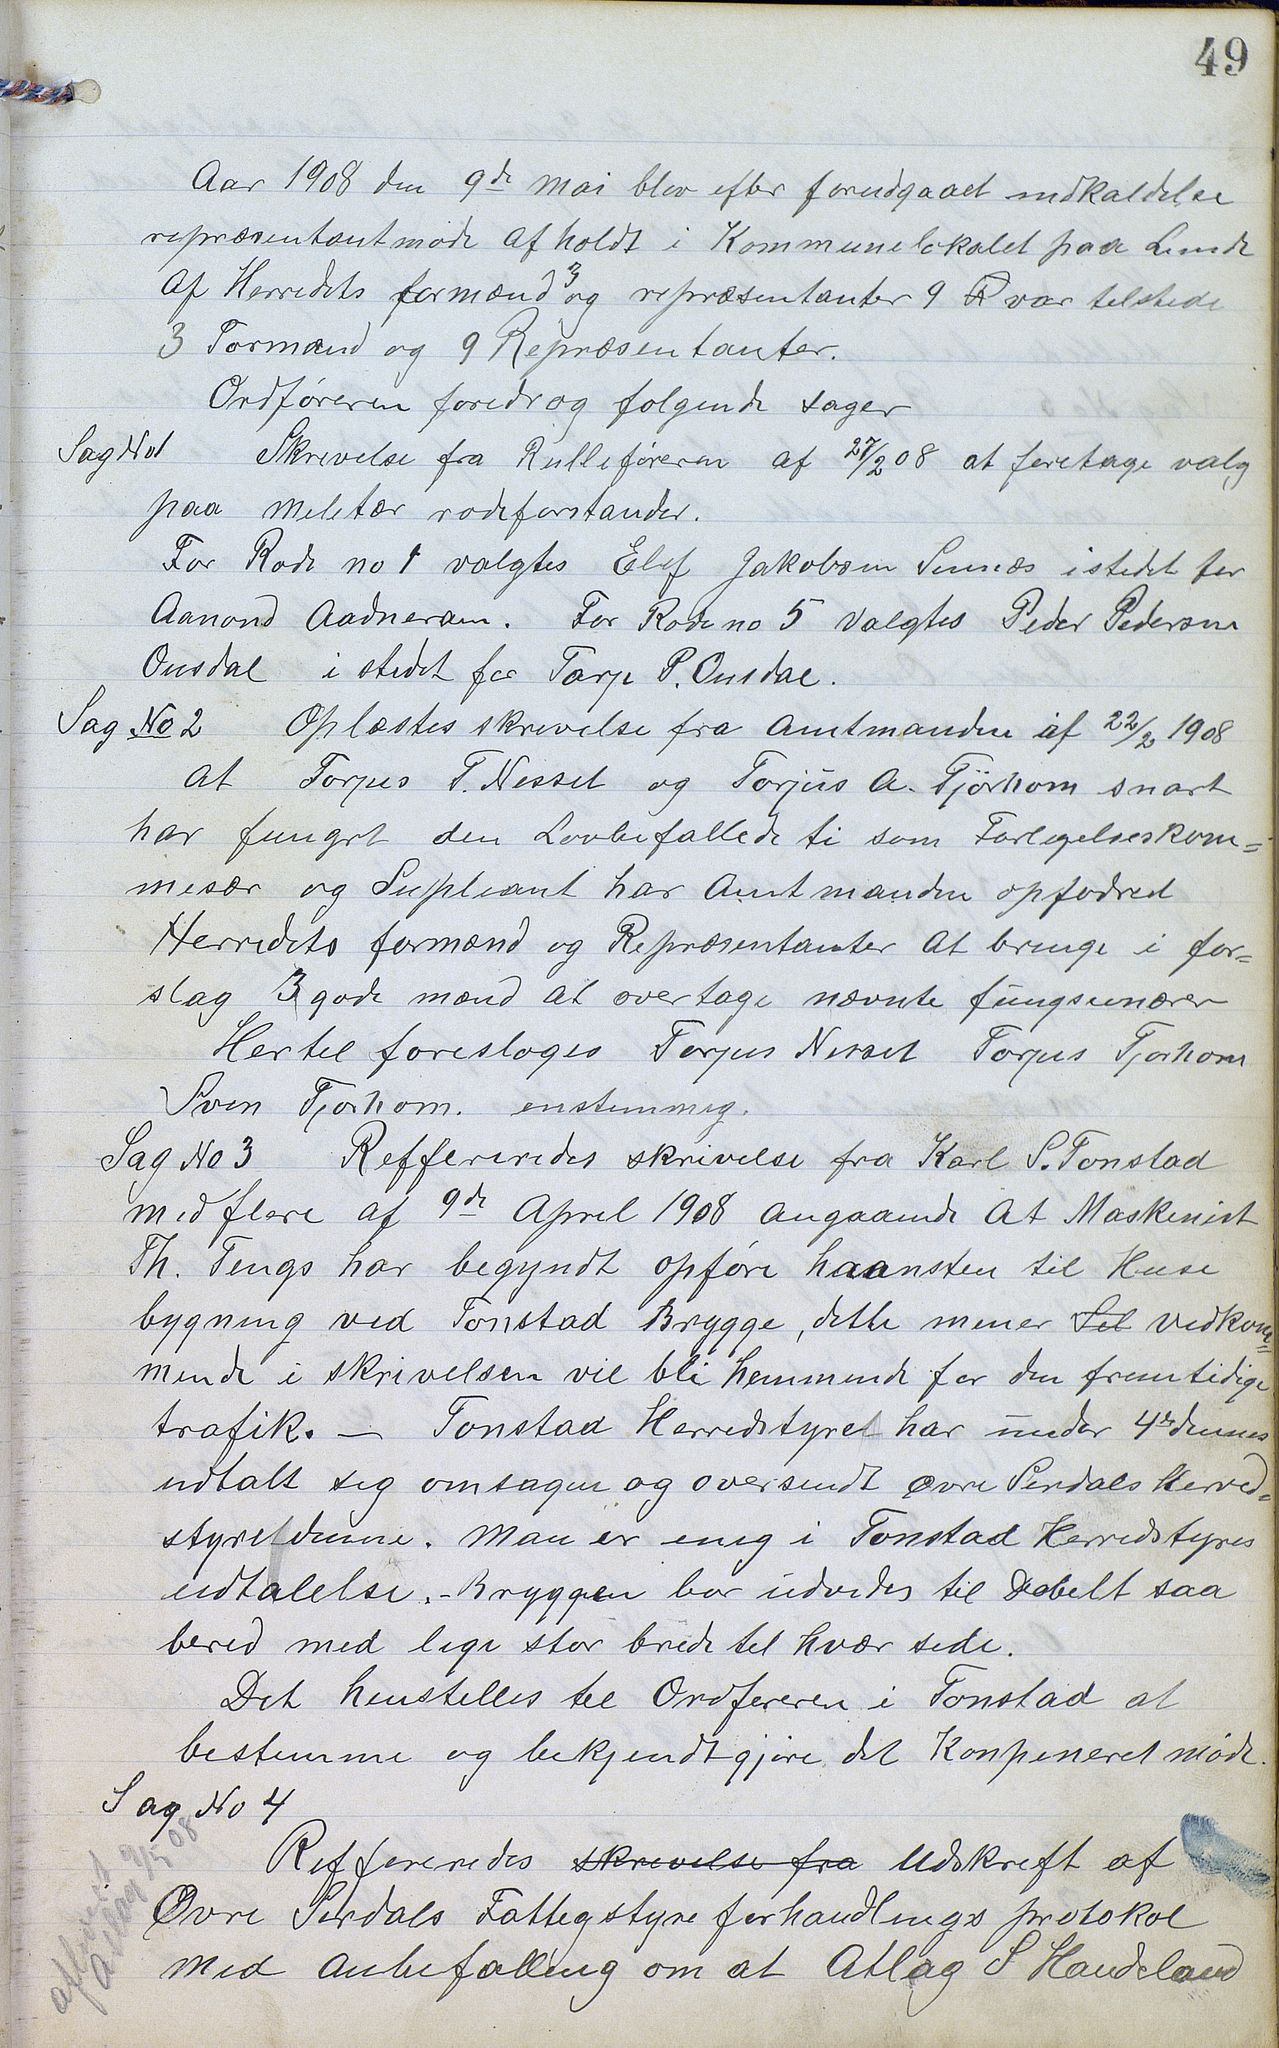 49
Aar 1908 den 9de mai blev efter forudgaaet indkaldelse
repræsentantmøde afholdt i Kommunelokalet paa Lunde
af Herredets formænd 3 og repræsentanter 9 var tilstede
3 Formænd og 9 Repræsentanter.
Ordføreren foredrog følgende sager
Sag No 1 Skrivelse fra Rulleføreren af 27/2 08 at foretage valg
paa meletær rodeforstander.
For Rode no 1 valgtes Elef Jakobsen Sinnæs istedet for
Aanond Aadneram. For Rode no 5 valgtes Peder Pedersen
Ousdal i stedet for Tarje P. Ousdal.
Sag No 2 Oplæstes skrivelse fra Amtmanden af 22/2 1908
At Torjus T. Nesset og Torjus A. Tjörhom snart
har fungrt den Lovbefallede ti som Forlegelseskom=
mesær og Supleant har Amtmanden opfodred
Herredets formænd og Repræsentanter At bringe i for=
slag 3 gode mænd at overtage nævnte fungsunærer
Hertel foresloges Torjus Nesset Torjus Tjorhom
Sven Tjorhom. enstemmig.
Sag No 3 Reffereredes skrivelse fra Karl S. Tonstad
med flere af 9de April 1908 angaaende At Maskenist
Th. Tengs har begyndt opføre haansten til Huse
bygning ved Tonstad Brygge, dette mener Sel vedkom=
mende i skrivelsen vil bli hemmende for den fremtidige
trafik. — Tonstad Herredstyret har under 4de dennes
udtalt seg omsagen og oversendt Øvre Serdals Herred=
styret denne. Man er eneg i Tonstad Herredstyres
udtalelse. - Bryggen bør udvedes til Dobelt saa
bered med lige stor brede tel hvær sede.
Det henstilles tel Ordføreren i Tonstad at
bestemme og bekjendtgjøre det Konpeneret møde.
Sag No 4
Reffereredes skrevelse fra Udskreft af
Øvre Serdals Fattegstyre forhandlings protokol
med Anbefalling om at Atlag S Handeland
afskrevet
Atlag 9/5 08